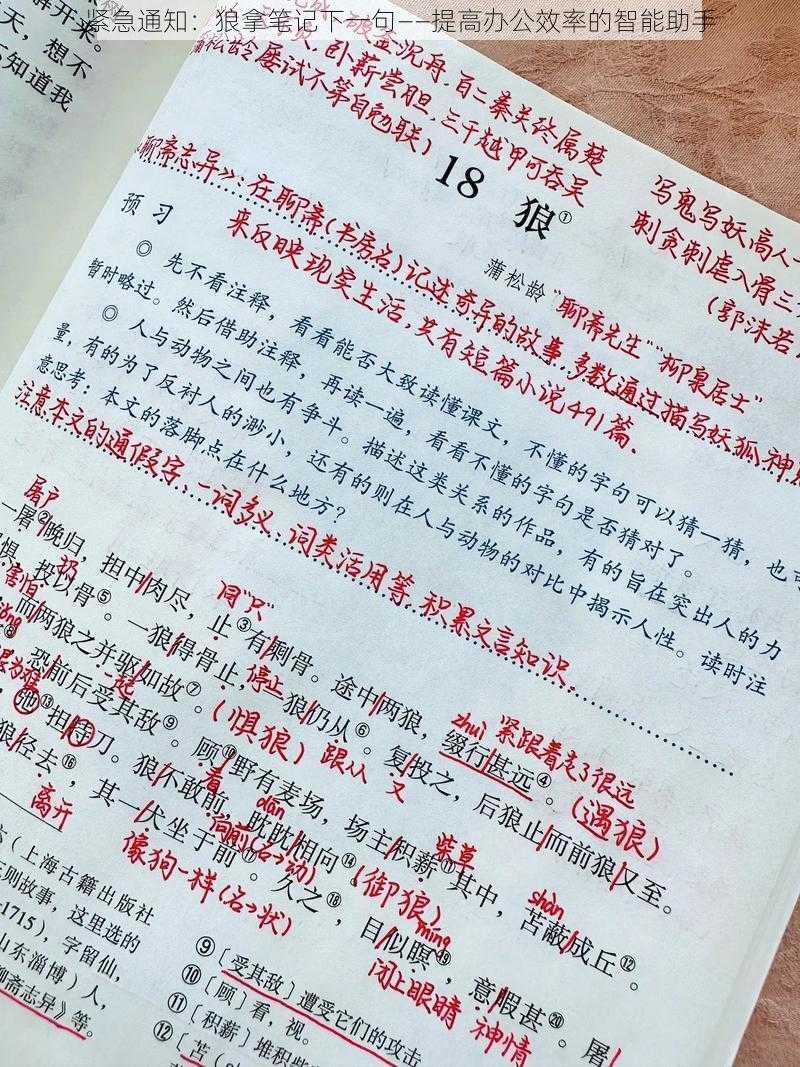 紧急通知：狼拿笔记下一句——提高办公效率的智能助手
开来。
天，想不
知道我
沉舟，百二秦关终属楚
卧薪尝胆，三千越甲可吞吴
蒲松龄屡试不第自勉联）
18 狼①
写鬼写妖高人一
刺贪刺虐入骨三
（郭沫若
蒲松龄 “聊斋先生”“柳泉居士”
聊斋志异》：在聊斋（书房名）记述奇异的故事，多数通过描写妖狐神
来反映现实生活，共有短篇小说491篇。
预习
◎ 先不看注释，看看能否大致读懂课文，不懂的字句可以猜一猜，也可
暂时略过。然后借助注释，再读一遍，看看不懂的字句是否猜对了。
◎ 人与动物之间也有争斗。描述这类关系的作品，有的旨在突出人的力
量，有的为了反衬人的渺小，还有的则在人与动物的对比中揭示人性。读时注
意思考：本文的落脚点在什么地方？
注意本文的通假字、一词多义、词类活用等，积累文言知识。
屠户
同“只”
zhuì 紧跟着走了很远
一屠②晚归，担中肉尽，止③有剩骨。途中两狼，缀行甚远④。（遇狼）
害怕
扔
停止
跟从
又
惧，投以骨⑤。一狼得骨止，一狼仍从⑥。复投之，后狼止而前狼又至。
一起
（惧狼）
而两狼之并驱如故⑦。
看
柴草
shàn
恐前后受其敌⑨。顾⑩野有麦场，场主积薪⑪其中，苫蔽成丘⑫。
弛⑬担持刀。狼不敢前，眈眈相向⑭。（御狼）
dān
向前（名→动）
离开
像狗一样（名→状）
míng
闭上眼睛
神情
狼径去⑯，其一犬坐于前⑰。久之⑱，目似瞑⑲，意暇甚⑳。屠
（上海古籍出版社
则故事，这里选的
1715），字留仙，
山东淄博）人，
聊斋志异》等。
⑨〔受其敌〕遭受它们的攻击
⑩〔顾〕看，视。
⑪〔积薪〕堆积柴
⑫〔苫